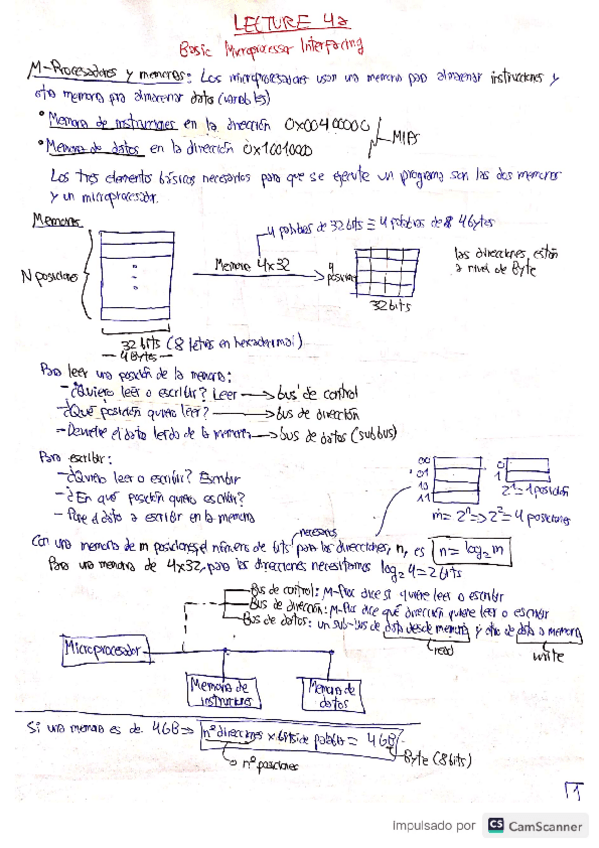 LECTURE 4a
Basic Microprocessor Interfacing
M-Procesadores y memorias: Los microprocesadores usan una memoria para almacenar instrucciones y
otra memoria para almacenar datos (variables)
• Memoria de instrucciones en la dirección 0x00400000
• Memoria de datos en la dirección 0x1001000
MIPS
Los tres elementos básicos necesarios para que se ejecute un programa son las dos memorias
y un microprocesador.
Memorias
4 palabras de 32 bits ≡ 4 palabras de 4 bytes
N posiciones
Memoria 4x32
4 posiciones
las direcciones están
a nivel de Byte
32 bits
32 bits (8 letras en hexadecimal)
4 Bytes
Para leer una posición de la memoria:
- ¿Quiero leer o escribir? Leer → bus de control
- ¿Qué posición quiero leer? → bus de dirección
- Devuelve el dato leído de la memoria → bus de datos (subbus)
Para escribir:
- ¿Quiero leer o escribir? Escribir
- ¿En qué posición quiero escribir?
- Pone el dato a escribir en la memoria
00
01
10
11
0
1
m = 2ⁿ => 2² = 4 posiciones
necesarios
Con una memoria de m posiciones, el número de bits para las direcciones, n, es n = log₂ m
Para una memoria de 4x32, para las direcciones necesitamos log₂ 4 = 2 bits
Bus de control: M-Proc dice si quiere leer o escribir
Bus de dirección: M-Proc dice qué dirección quiere leer o escribir
Bus de datos: un sub-bus de dato desde memoria y otro de dato a memoria
read
write
Microprocesador
Memoria de
instrucciones
Memoria de
datos
Si una memoria es de 4GB => nº direcciones x bits de palabra = 4GB
Byte (8 bits)
nº posiciones
1
Impulsado por CS CamScanner